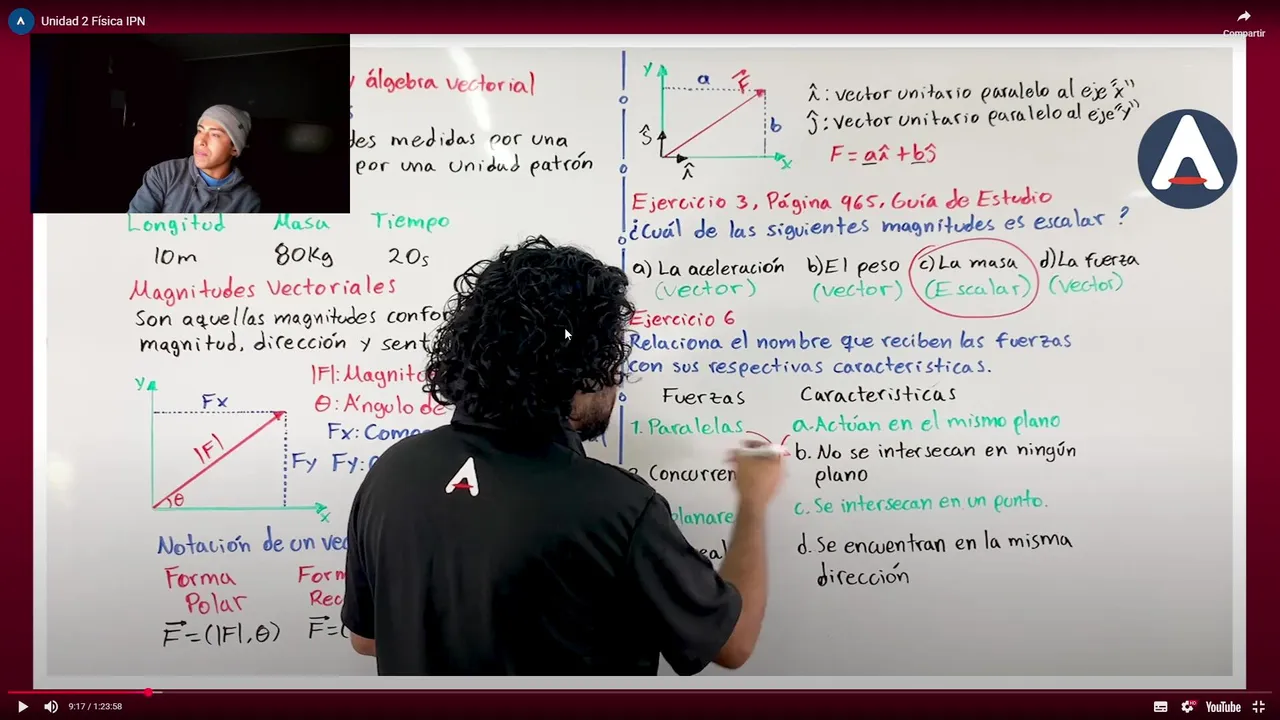 Unidad 2 Física IPN
Compartir
y álgebra vectorial
des medidas por una
por una unidad patrón
Longitud Masa Tiempo
10m 80Kg 20s
Magnitudes Vectoriales
Son aquellas magnitudes confor
magnitud, dirección y sent
y
Fx
|F|
θ
x
Fy
|F|: Magnitu
θ: Ángulo de
Fx: Compo
Fy:
Notación de un vec
Forma
Polar
F⃗=(|F|, θ)
Form
Rec
F⃗=(
y
a
F⃗
b
ĵ
î
x
î: vector unitario paralelo al eje "x"
ĵ: vector unitario paralelo al eje "y"
F = aî + bĵ
Ejercicio 3, Página 965, Guía de Estudio
¿Cuál de las siguientes magnitudes es escalar?
a) La aceleración b) El peso c) La masa d) La fuerza
(vector) (vector) (Escalar) (vector)
Ejercicio 6
Relaciona el nombre que reciben las fuerzas
con sus respectivas caracteristicas.
Fuerzas Caracteristicas
1. Paralelas
Concurren
planare
eal
a. Actúan en el mismo plano
b. No se intersecan en ningún
plano
c. Se intersecan en un punto.
d. Se encuentran en la misma
dirección
9:17 / 1:23:58
HD
YouTube